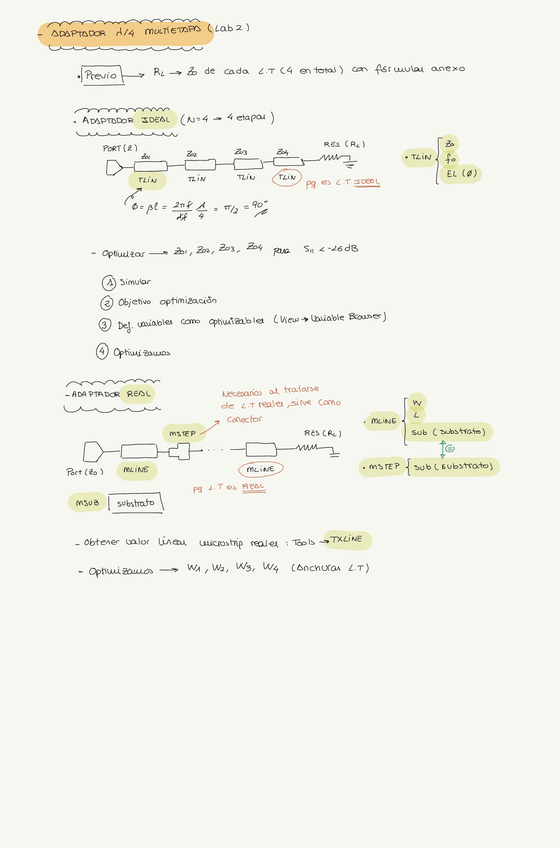 - ADAPTADOR λ/4 MULTIETAPA (Lab 2)
• Previo → RL → Z0 de cada L.T (4 en total) con fórmulas anexo
• ADAPTADOR IDEAL (N=4 → 4 etapas)
PORT (Z) Z01 Z02 Z03 Z04 RES (RL)
TLIN TLIN TLIN TLIN
pq es L.T IDEAL
• TLIN { Z0
f0
EL (Ø)
Ø = βl = 2πf/λf λ/4 = π/2 = 90°
- Optimizar → Z01, Z02, Z03, Z04 para S11 < -25dB
① Simular
② Objetivo optimización
③ Def. variables como optimizables (View → Variable Browser)
④ Optimizamos
- ADAPTADOR REAL
Necesarios al tratarse
de L.T reales, sirve como
conector
MSTEP
Port (Z0) MLINE ... MLINE RES (RL)
pq L.T es REAL
• MLINE { W
L
sub (substrato)
=
• MSTEP { sub (substrato)
MSUB substrato
- Obtener valor líneas microstrip reales : Tools → TXLINE
- Optimizamos → W1, W2, W3, W4 (Anchuras L.T)